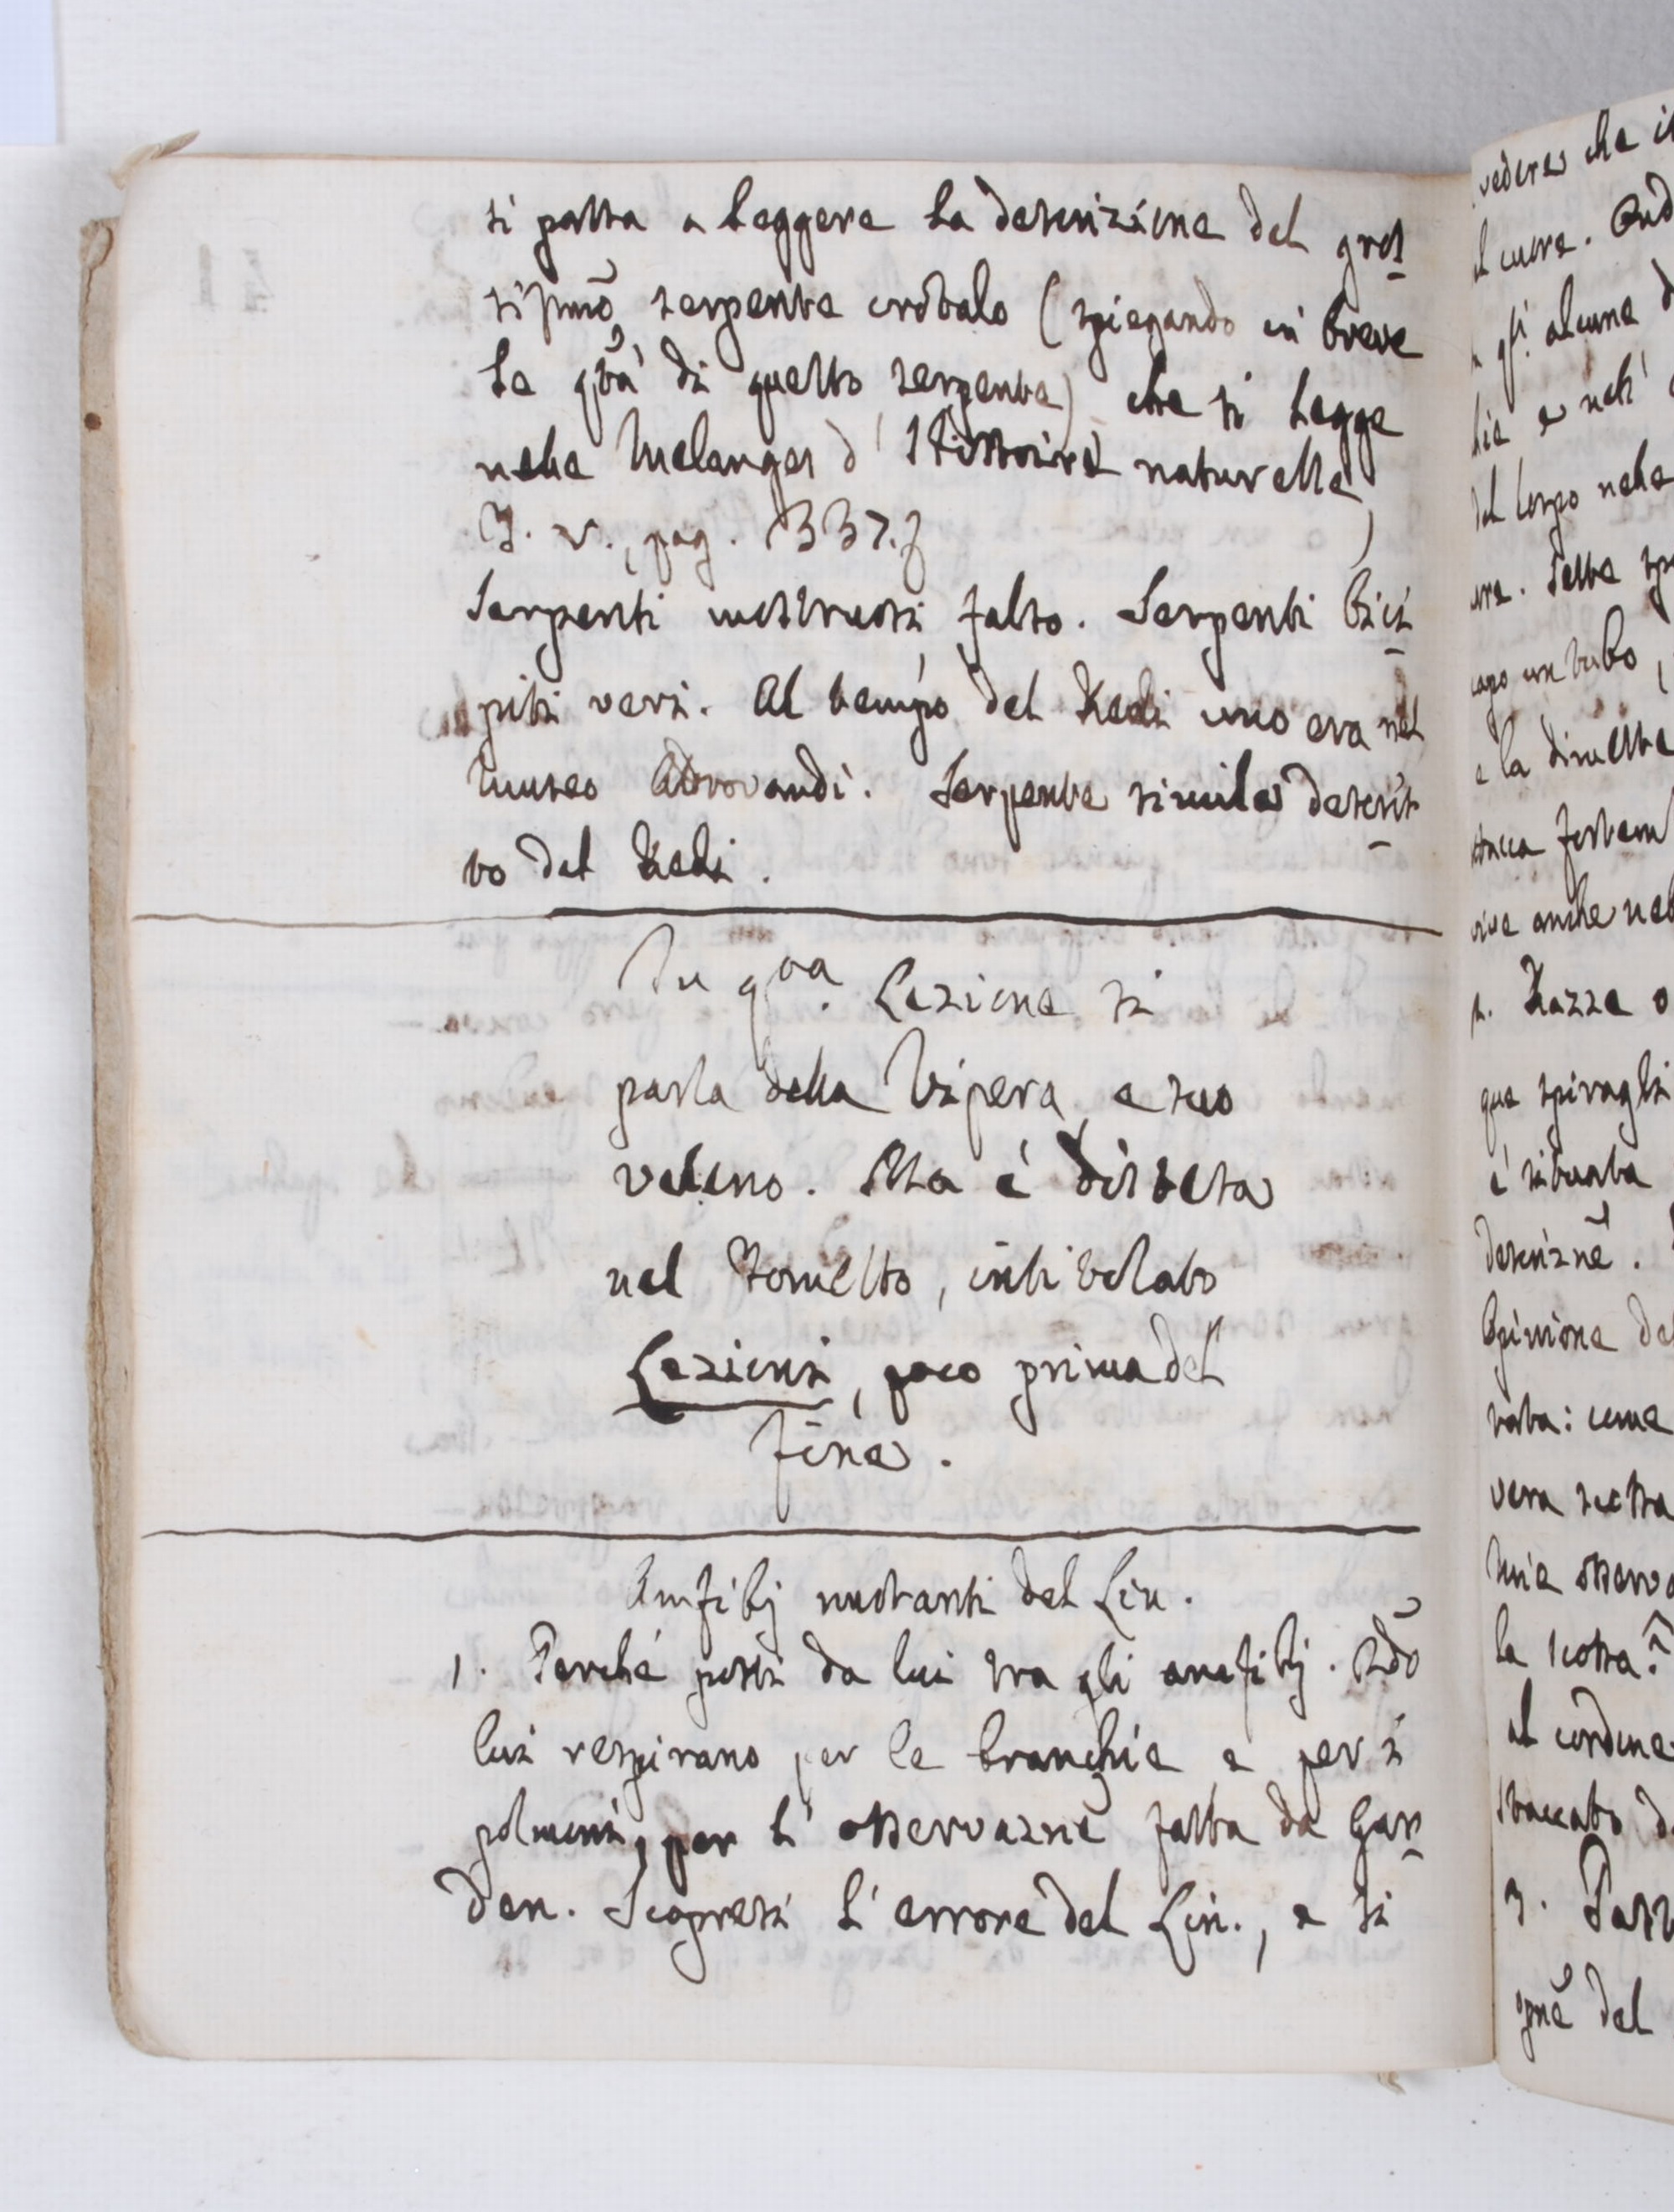 si passa a leggere la descrizione del gros-
sissmō serpente crotalo (spiegando in breve
le qtà di questo serpente) che si legge
nelle Melanges d'Histoire naturelle,
T. v., pag. 337.
Serpenti mostruosi falso. Serpenti bici-
piti veri. Al tempo del Redi uno era nel
Museo Aldrovandi. Serpente simile descrit-
to dal Redi.
In qta. Lezione si
parla della Vipera e suo
veleno. Essa è distesa
nel tometto, intitolato
Lezioni, poco prima del
fine.
Amfibj nuotanti del Lin.
1. Perché posti da lui tra gli amfibj. Sdō
lui respirano per le branchie e per i
polmoni, per l'osservazne fatta da Gar-
den. Scopresi l'errore del Lin., e si
vedere che il
il cuore.
alcune
e nell'
del corpo nelle
tubo,
e la
vive anche nel
2. Razze o
que spiragli
è situata
descrizne.
Opinione del
tata: come
vera
mia
la
al cordone
staccato
3.
del